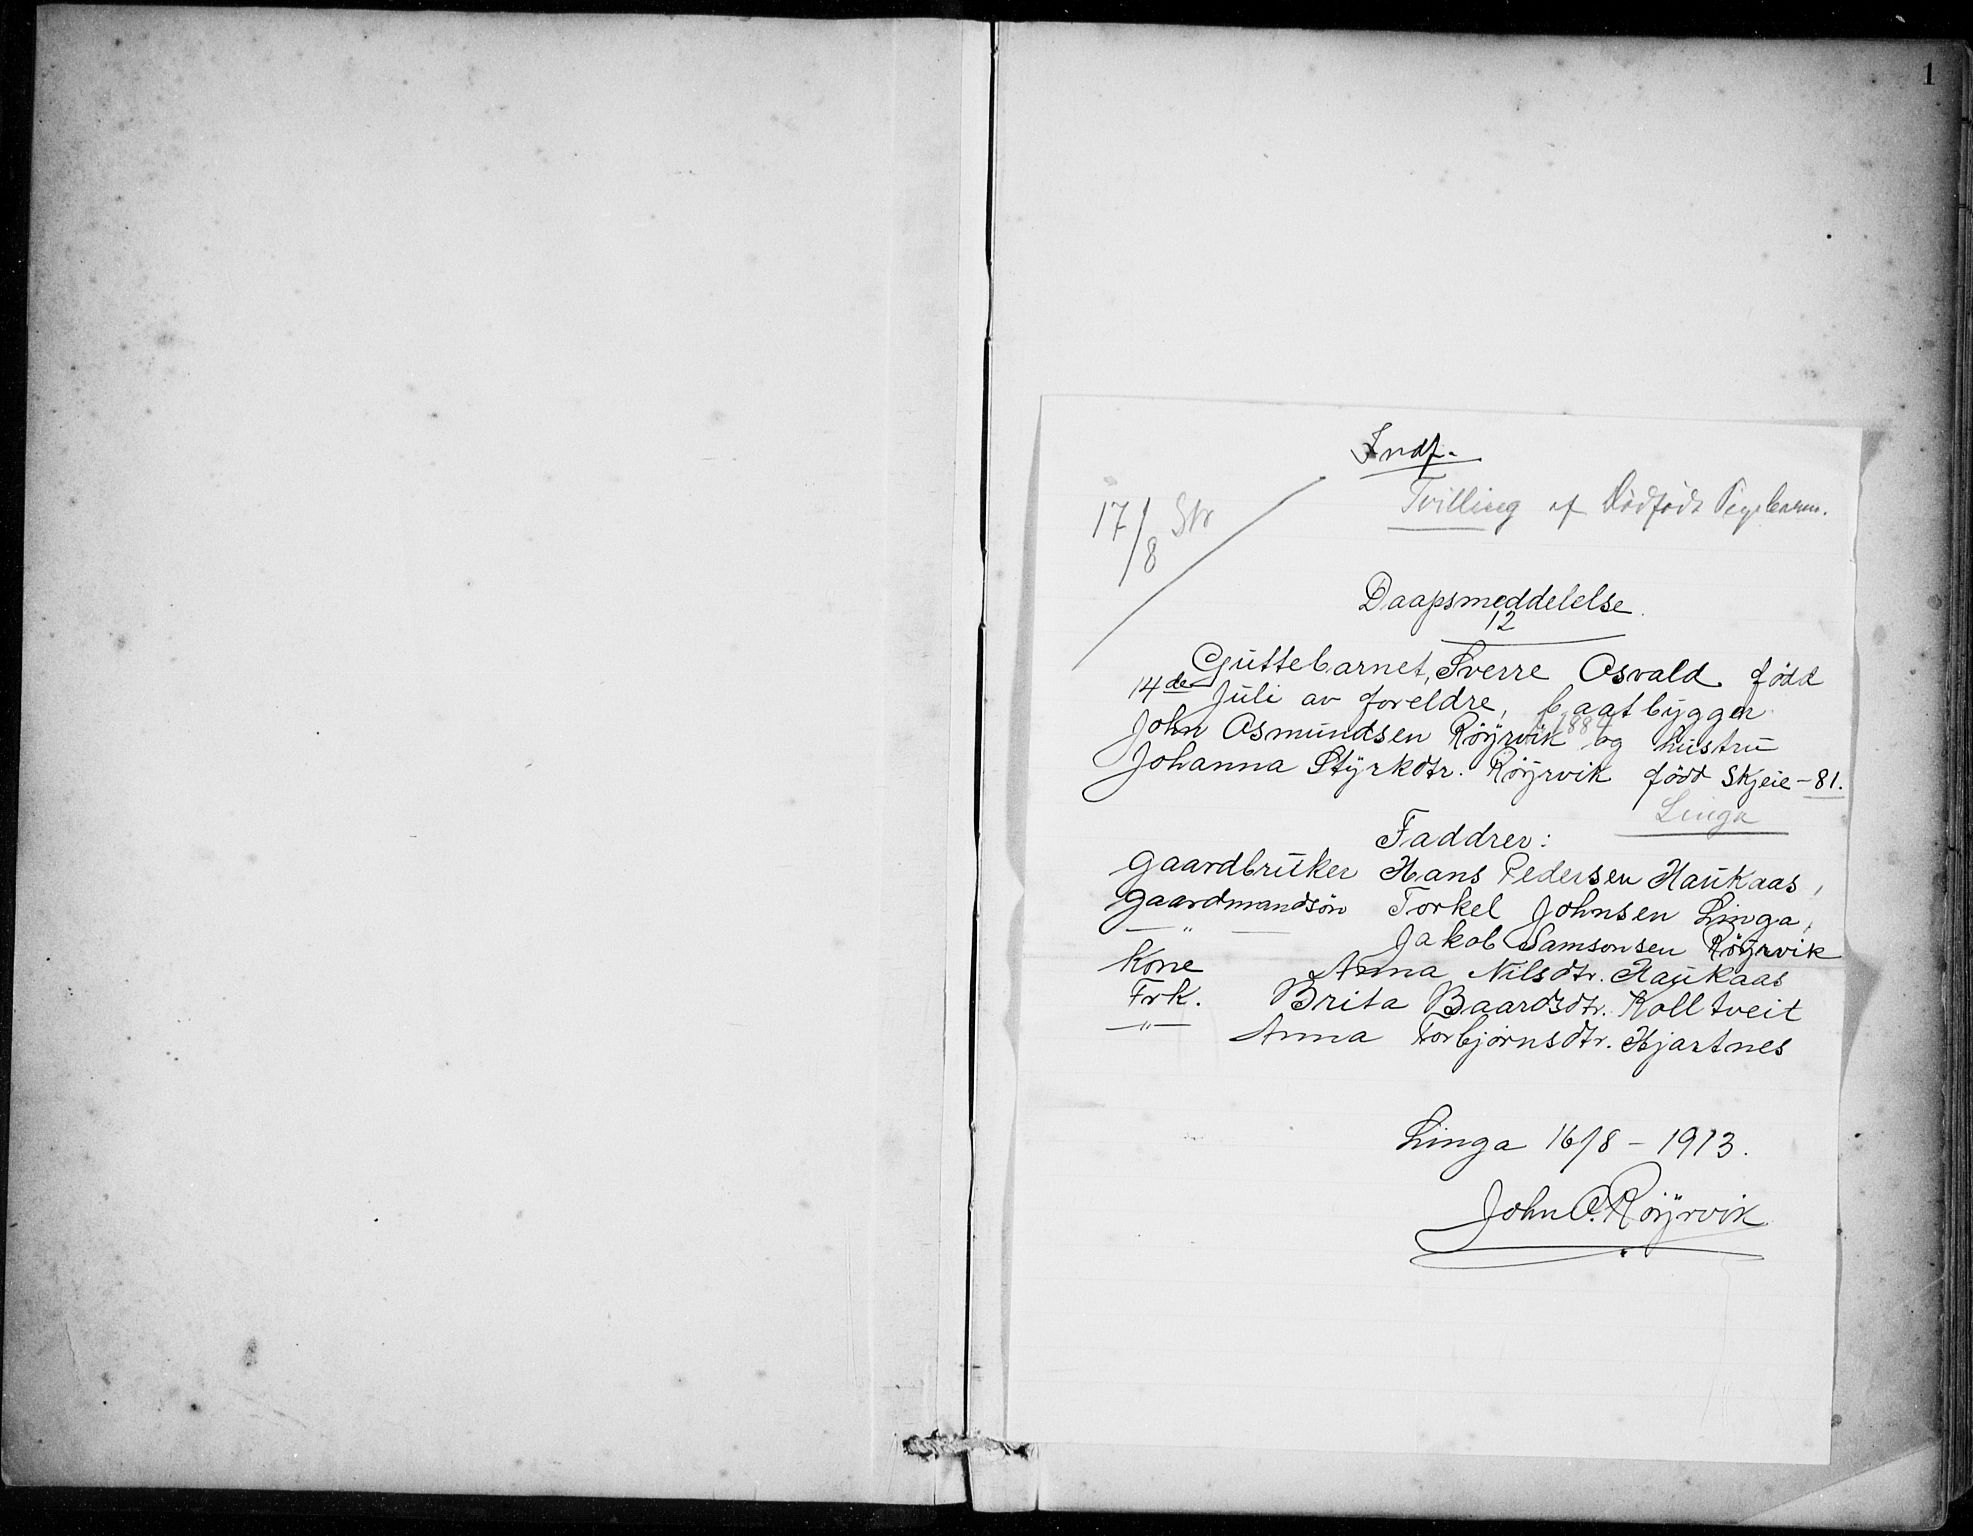 1
Indf.
Tvilling af Dödfödt Pigebarn.
17/8 Str
Daapsmeddelelse.
12
Guttebarnet, Sverre Osvald född
14de Juli av foreldre, baatbygger
John Osmundsen Röyrvik 1884 og hustru
Johanna Styrkdtr. Röyrvik född Skjeie - 81.
Linga
Faddrer:
Gaardbruker Hans Pedersen Haukaas,
Gaardmandsön Torkel Johnsen Linga,
— " — Jakob Samsonsen Röyrvik
Kone Anna Nilsdtr. Haukaas
Frk. Brita Baardsdtr. Kolltveit
— " — Anna Torbjørnsdtr. Hjartnes
Linga 16/8 - 1913.
John O. Röyrvik